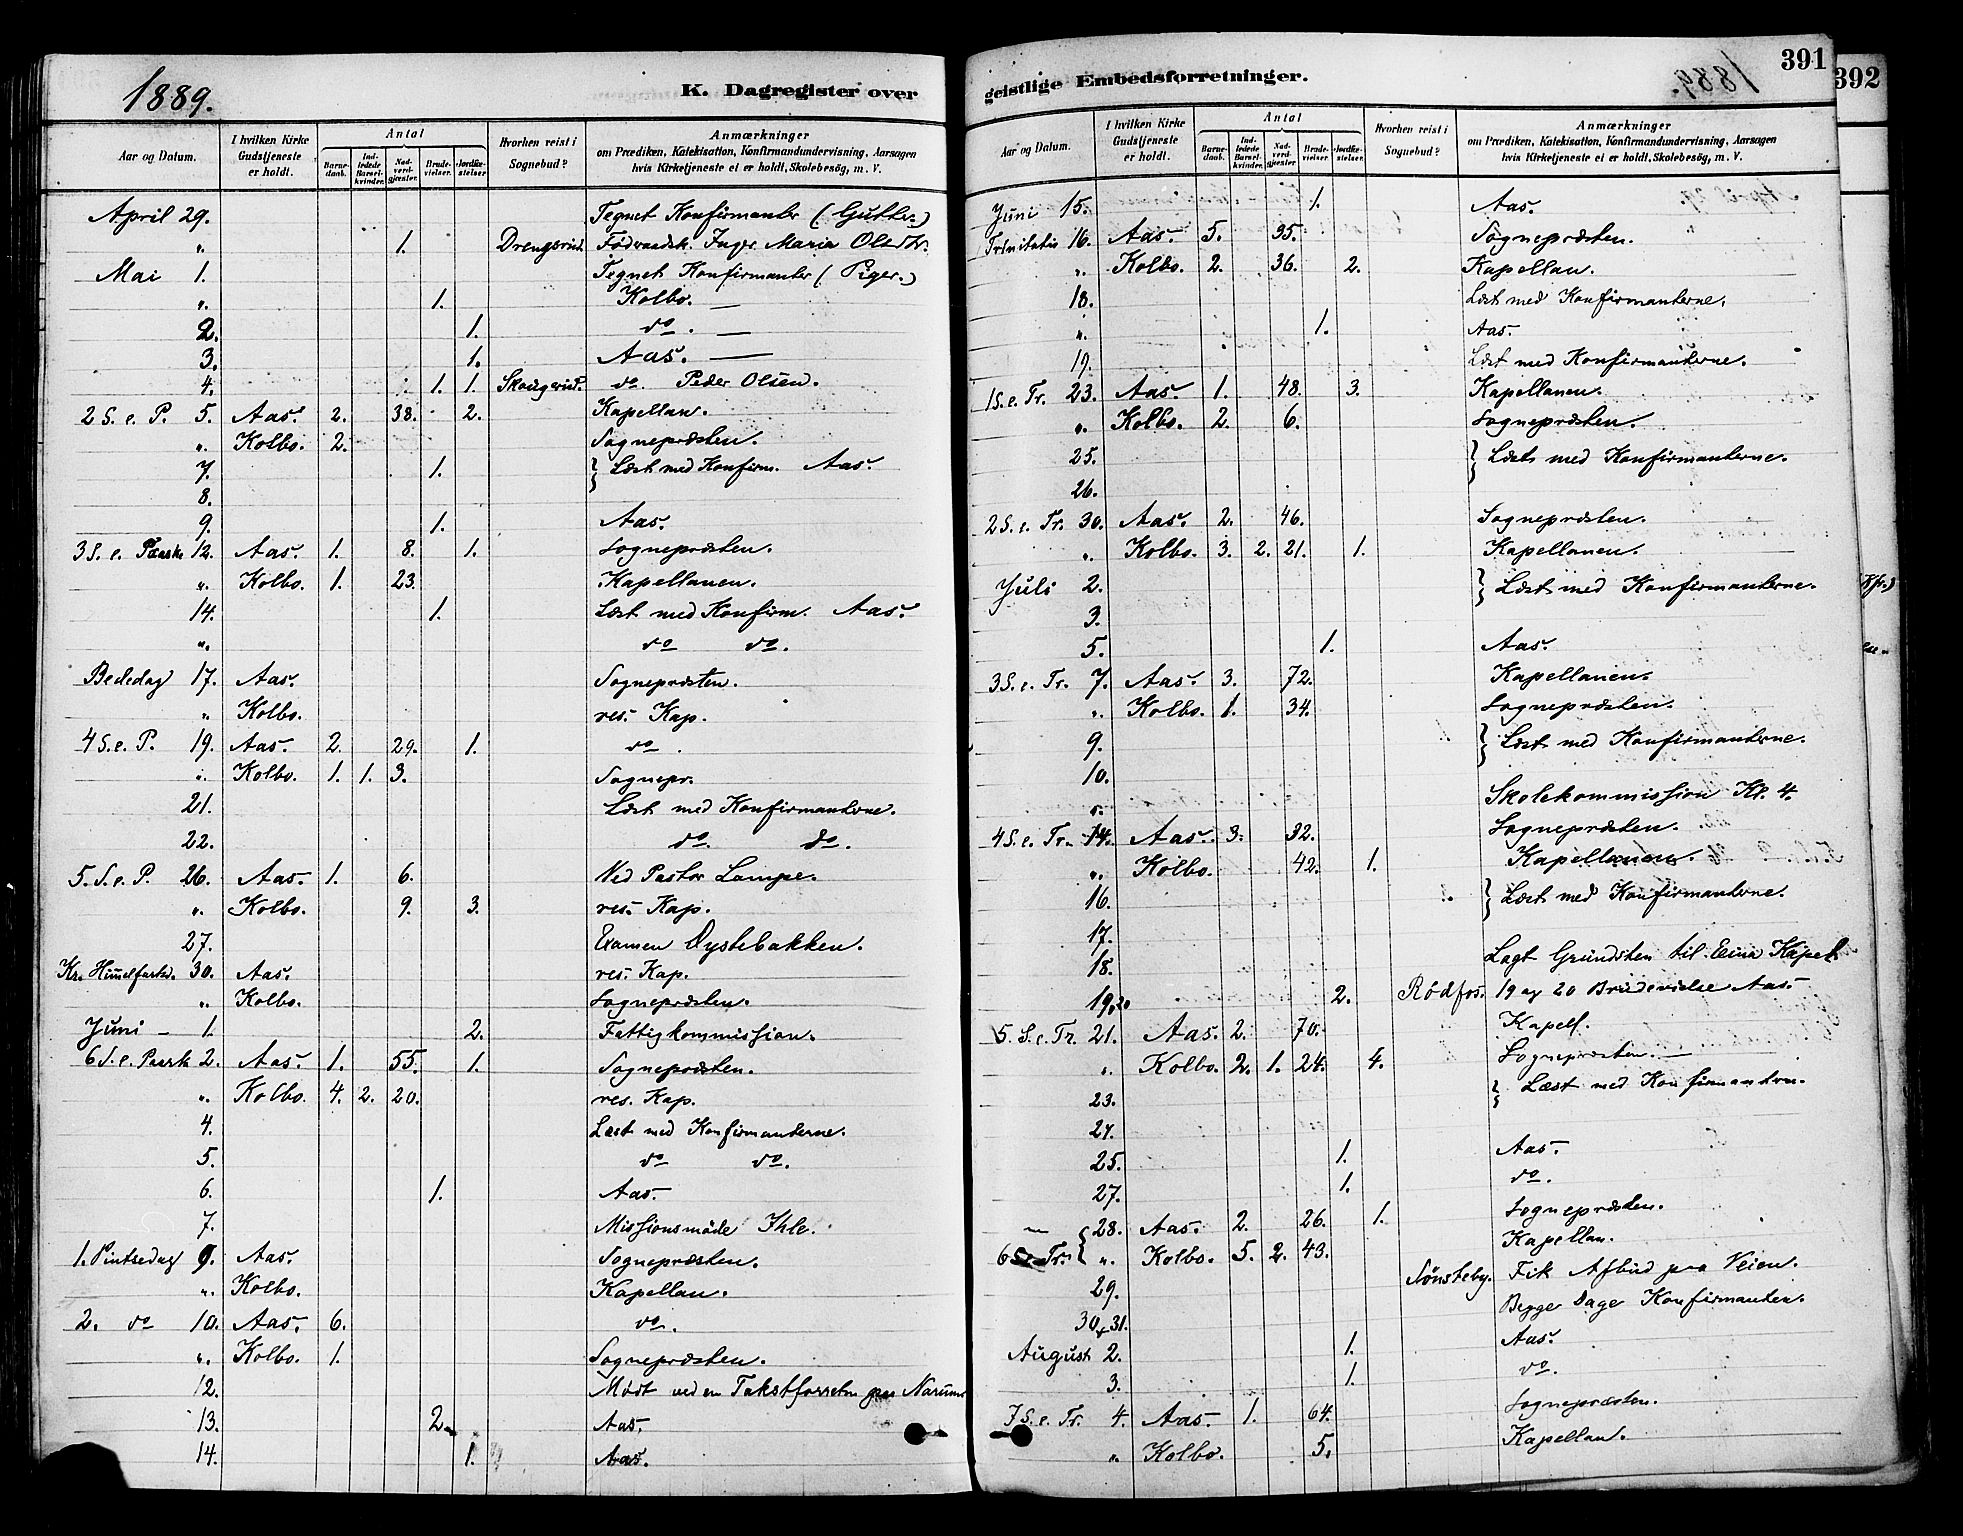 1889.
K. Dagregister over
Aar og Datum.
I hvilken Kirke Gudstjeneste er holdt.
Antal
Barnedaab.
Indledede Barselkvinder.
Nadverdgjæster.
Brudevielser.
Jordfæstelser
Hvorhen reist i Sognebud?
Anmærkninger
om Prædiken, Katekisation, Konfirmandundervisning, Aarsagen
hvis Kirketjeneste ei er holdt, Skolebesög, m. V.
April 29. Tegnet Konfirmanter (Gutter)
" 1. Drengsrud. Födraadsk. Inger Maria Olsdtr.
Mai 1. Tegnet Konfirmanter (Piger.)
". 1. Kolbo. —
2. 1. do. —
3. 1. Aas. —
4. 1. 1. Skougsrud. do. Peder Olsen.
2 S. e. P. 5. Aas. 2. 38. 2. Kapellan.
". Kolbo. 2. Sognepræsten.
7. 1. } Læst med Konfirm. Aas.
8.
9. 1. Aas.
3 S. e. Paaske 12. Aas. 1. 8. 1. Sognepræsten.
". Kolbo. 1. 23. Kapellanen.
14. 1. Læst med Konfirm. Aas.
". do do.
Bededag 17. Aas. Sognepræsten.
". Kolbo. res. Kap.
4 S. e. P. 19. Aas. 2. 29. 1. do.
". Kolbo. 1. 1. 3. Sognepr.
21. Læst med Konfirmanterne.
22. do. do.
5. S. e. P. 26. Aas. 1. 6. Ved Pastor Lampe.
". Kolbo. 9. 3. res. Kap.
27. Examen Öystebakken.
Kr. Himelfartsd. 30. Aas. res. Kap.
". Kolbo. Sognepræsten.
Juni — 1. 2. Fattigkommission.
6 S. e. Paask 2. Aas. 1. 55. 1. Sognepræsten.
". Kolbo. 4. 2. 20. res. Kap.
4. Læst med Konfirmanterne.
5. do do.
6. 1. Aas.
7. Missionsmöde Ihle.
1. Pintsedag 9. Aas. Sognepræsten.
". Kolbo. Kapellan.
2. do 10. Aas. 6. do.
". Kolbo. 1. Sognepræsten.
12. Mödt ved en Takstforretn paa Narum
13. 2. Aas.
14. 1. Aas.
geistlige Embedsforretninger.
391
392
Aar og Datum.
I hvilken Kirke Gudstjeneste er holdt.
Antal
Barnedaab.
Indledede Barselkvinder.
Nadverdgjæster.
Brudevielser.
Jordfæstelser.
Hvorhen reist i Sognebud?
Anmærkninger
om Prædiken, Katekisation, Konfirmandundervisning, Aarsagen
hvis Kirketjeneste ei er holdt, Skolebesög, m. V.
Juni 15. 1. Aas.
Trinitatis 16. Aas. 5. 35. Sognepræsten.
". Kolbo. 2. 36. 2. Kapellan.
18. Læst med Konfirmanterne.
". 1. Aas.
19. Læst med Konfirmanterne.
1 S. e. Tr. 23. Aas. 1. 48. 3. Kapellanen.
". Kolbo. 2. 6. Sognepræsten.
25. } Læst med Konfirmanterne.
26.
2 S. e. Tr. 30. Aas. 2. 46. Sognepræsten.
". Kolbo. 3. 2. 21. 1. Kapellanen.
Juli 2. } Læst med Konfirmanterne.
3.
5. 1. Aas.
3 S. e. Tr. 7. Aas. 3. 72. Kapellanen.
". Kolbo. 1. 34. Sognepræsten.
9. } Læst med Konfirmanterne.
10.
". Skolekommission Kl. 4.
4 S. e. Tr. 14. Aas. 3. 32. Sognepræsten.
". Kolbo. 42. 1. Kapellanen.
16. } Læst med Konfirmanterne.
17.
18. Lagt Grundsten til Eina Kapel
19, 20 2. Rödfos. 19 og 20 Brudevielse Aas.
5. S. e. Tr. 21. Aas. 2. 70. Kapell.
". Kolbo. 2. 1. 24. 4. Sognepræsten. —
23. } Læst med Konfirmantern.
24.
25. 1. Aas.
27. 1. do.
28. Aas. 2. 26. 1. Sognepræsten.
6 S. e. Tr. { ". Kolbo. 5. 2. 43. Kapellan.
29. Sönsteby. Fik Afbud paa Veien.
30 + 31. Begge Dage Konfirmanter.
August 2. 1. Aas.
3. 1. do.
7 S. e. Tr. 4. Aas. 1. 64. Sognepræsten.
". Kolbo. 5. Kapellan.